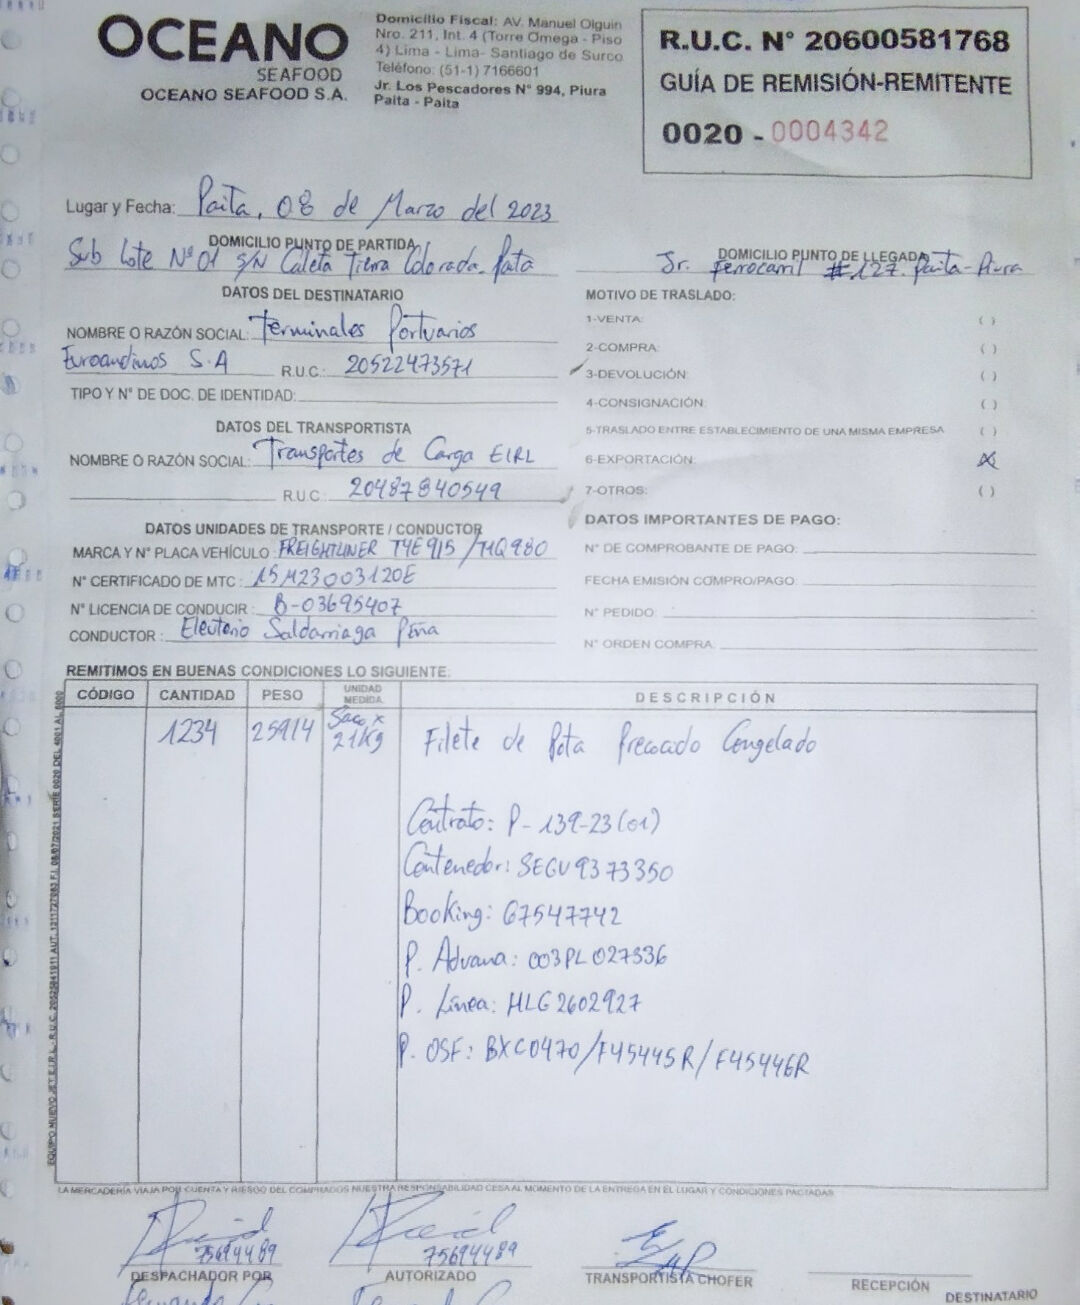 OCEANO
SEAFOOD
OCEANO SEAFOOD S.A.
Domicilio Fiscal: AV. Manuel Olguin
Nro. 211, Int. 4 (Torre Omega - Piso
4) Lima - Lima- Santiago de Surco
Teléfono: (51-1) 7166601
Jr. Los Pescadores N° 994, Piura
Paita - Paita
R.U.C. N° 20600581768
GUÍA DE REMISIÓN-REMITENTE
0020 - 0004342
Lugar y Fecha: Paita, 08 de Marzo del 2023
DOMICILIO PUNTO DE PARTIDA
Sub Lote N° 01 S/N Caleta Tierra Colorada Paita
DOMICILIO PUNTO DE LLEGADA
Jr. Ferrocarril # 127. Paita-Piura
DATOS DEL DESTINATARIO
NOMBRE O RAZÓN SOCIAL: Terminales Portuarios
Euroandinos S.A R.U.C.: 20522473571
TIPO Y N° DE DOC. DE IDENTIDAD:
MOTIVO DE TRASLADO:
1-VENTA: ( )
2-COMPRA: ( )
3-DEVOLUCIÓN: ( )
4-CONSIGNACIÓN: ( )
5-TRASLADO ENTRE ESTABLECIMIENTO DE UNA MISMA EMPRESA ( )
6-EXPORTACIÓN: (X)
7-OTROS: ( )
DATOS DEL TRANSPORTISTA
NOMBRE O RAZÓN SOCIAL: Transportes de Carga EIRL
R.U.C.: 20487840549
DATOS UNIDADES DE TRANSPORTE / CONDUCTOR
MARCA Y N° PLACA VEHÍCULO: FREIGHTLINER T4E915 /
N° CERTIFICADO DE MTC: 15M23003120E
N° LICENCIA DE CONDUCIR: B-03695407
CONDUCTOR: Eleuterio Saldarriaga Peña
DATOS IMPORTANTES DE PAGO:
N° DE COMPROBANTE DE PAGO:
FECHA EMISIÓN COMPRO/PAGO:
N° PEDIDO:
N° ORDEN COMPRA:
REMITIMOS EN BUENAS CONDICIONES LO SIGUIENTE:
CÓDIGO CANTIDAD PESO UNIDAD MEDIDA DESCRIPCIÓN
1234 25914 Saco x 21Kg Filete de Pota Precocido Congelado
Contrato: P-139-23(01)
Contenedor: SEGU9373350
Booking: 67547742
P. Aduana: 003PL027336
P. Línea: HLG2602927
P. OSF: BXC0470/F45445R/F45446R
LA MERCADERÍA VIAJA POR CUENTA Y RIESGO DEL COMPRADOS NUESTRA RESPONSABILIDAD CESA AL MOMENTO DE LA ENTREGA EN EL LUGAR Y CONDICIONES PACTADAS
75694489
DESPACHADOR POR
75694489
AUTORIZADO
TRANSPORTISTA CHOFER
RECEPCIÓN
DESTINATARIO